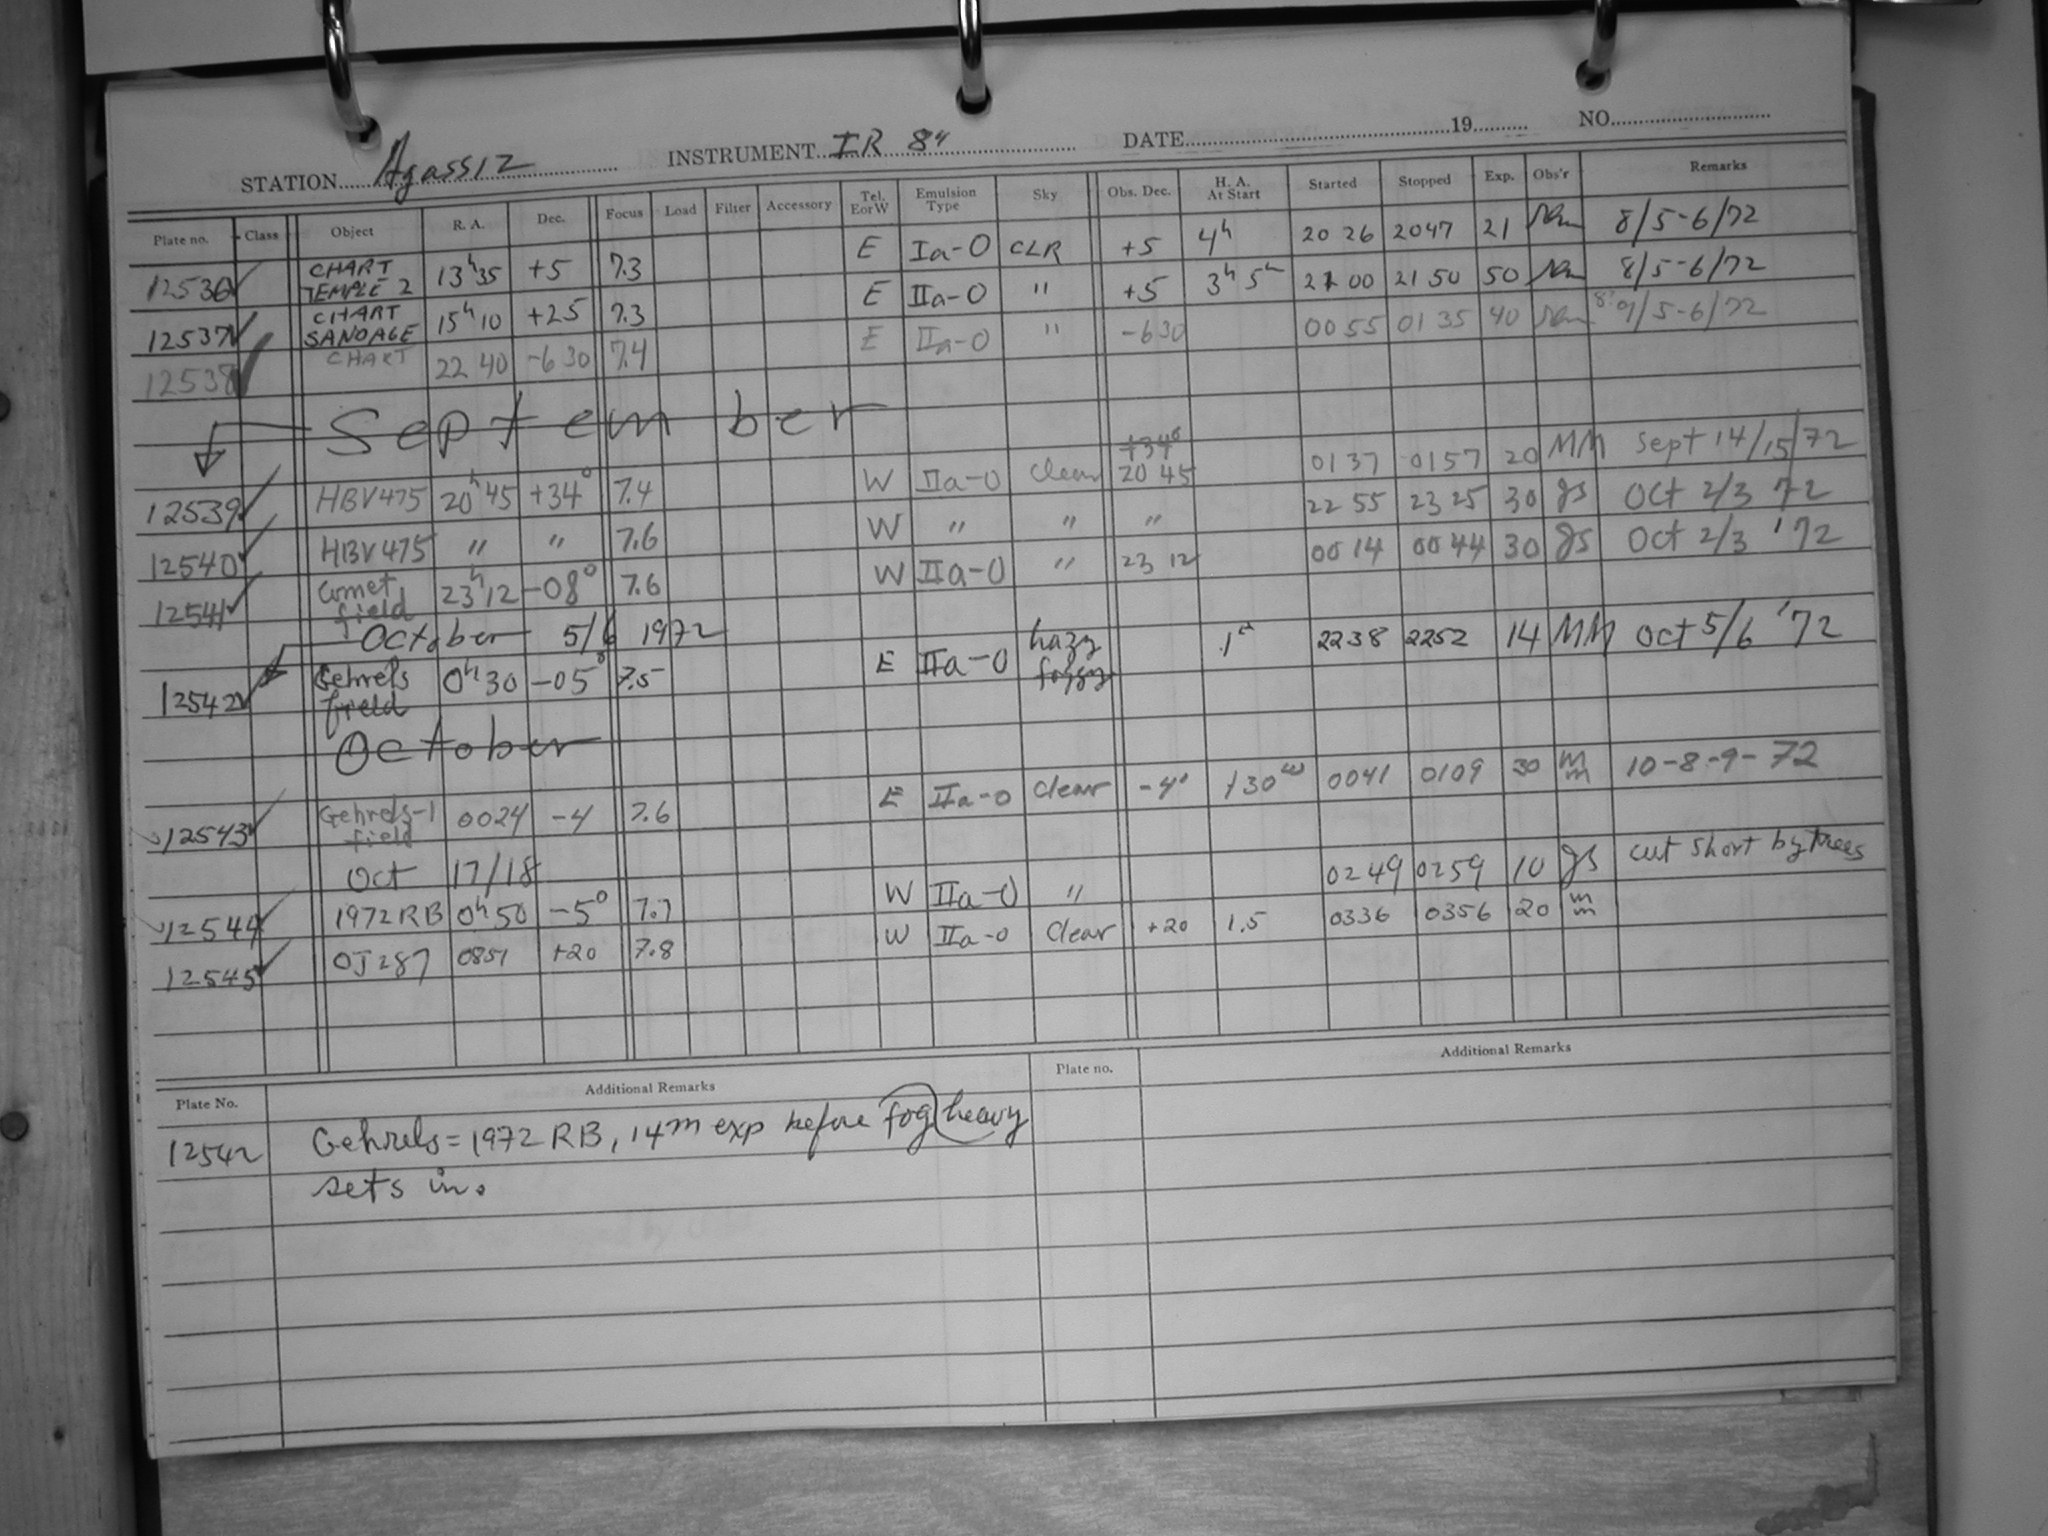 STATION Agassiz INSTRUMENT IR 8" DATE 19 NO.
Plate no. Class Object R. A. Dec. Focus Load Filter Accessory Tel. E or W Emulsion Type Sky Obs. Dec. H. A. At Start Started Stopped Exp. Obs'r Remarks
12536 CHART TEMPLE 2 13h35 +5 7.3 E Ia-O CLR +5 4h 20 26 2047 21 8/5-6/72
12537 CHART SANDAGE 15h10 +25 7.3 E IIa-O " +5 3h 5m 21 00 21 50 50 8/5-6/72
12538 CHART 22 40 -6 30 7.4 E IIa-O " -6 30 00 55 01 35 40 9/5-6/72
September
12539 HBV475 20h45 +34° 7.4 W IIa-O Clear +34° 20 45 0137 0157 20 MM Sept 14/15/72
12540 HBV475 " " 7.6 W " " " 22 55 23 25 30 gs Oct 2/3 72
12541 Comet field 23h12 -08° 7.6 W IIa-O " 23 12 00 14 00 44 30 gs Oct 2/3 '72
October 5/6 1972
12542 Gehrels field 0h30 -05° 7.5 E IIa-O hazy foggy 1h 2238 2252 14 MM Oct 5/6 '72
October
12543 Gehrels-1 field 0024 -4 7.6 E IIa-O Clear -4° 0041 0109 30 mm 10-8-9-72
Oct 17/18
12544 1972RB 0h50 -5° 7.7 W IIa-O " 0249 0259 10 gs cut short by trees
12545 OJ287 0851 +20 7.8 W IIa-O Clear +20 1.5 0336 0356 20 mm
Plate No. Additional Remarks Plate no. Additional Remarks
12542 Gehrels = 1972 RB, 14m exp before fog heavy
sets in.